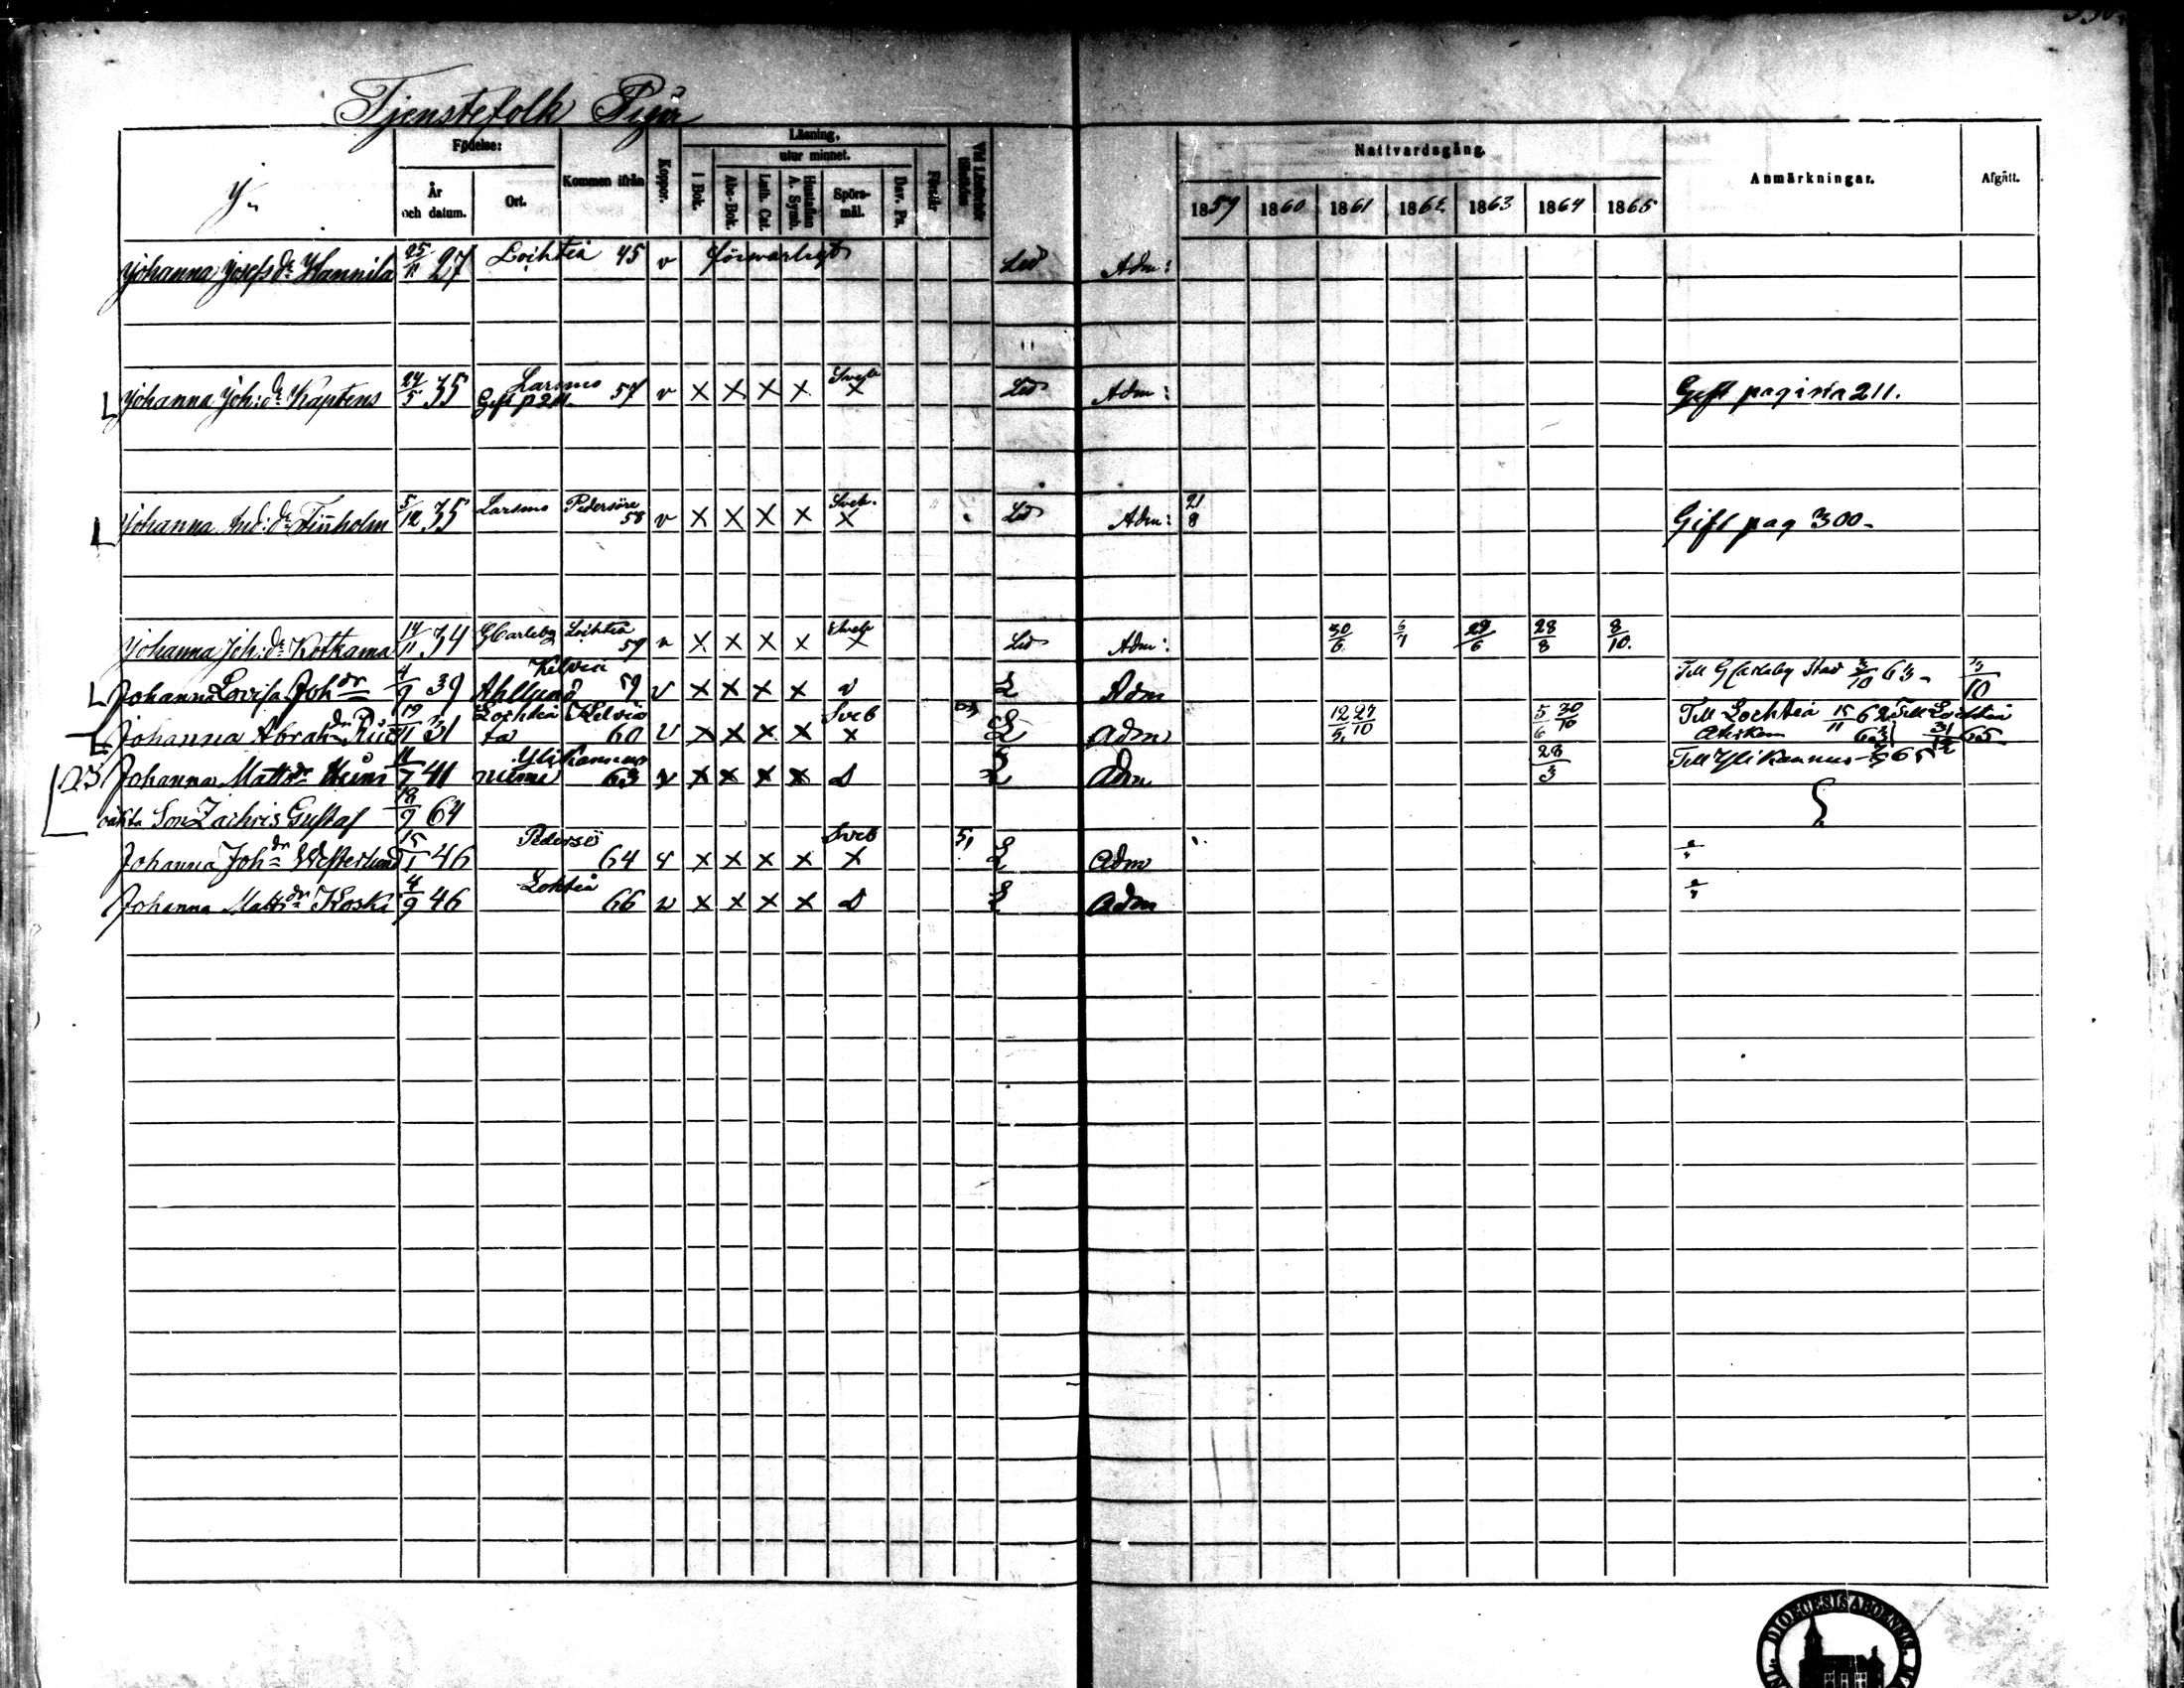 Tjenstefolk Pigor
Födelse: Kommen ifrån Koppor. Läsning, utur minnet. Nattvardsgång. Anmärkningar. Afgått.
År och datum. Ort. I Bok. Abc-Bok. Luth. Cat. Hustaflan A. Symb. Spörs-mål. Dav. Ps. Förstår 1859 1860 1861 1862 1863 1864 1865
Johanna Josefs dr Hannila 25/11 27 Lochteå 45 v försvarligt Led Adm:
Johanna Joh: dr Kaptens 24/5 35 Larsmo 57 v X X X X Sveb X Led Adm: Gift pagina 211.
Gift p 211.
Johanna And: dr Finholm 5/12 35 Larsmo Pedersöre 58 v X X X X Sveb. X Led Adm: 21/8 Gift pag 300
Johanna Joh: dr Kotkama 14/11 34 GCarleby Lochteå 59 v X X X X Sveb X Led Adm: 30/6 6/7 29/6 28/8 8/10.
Johanna Lovisa Joh dr 4/9 39 Ahllund Kelviå 59 v X X X X v L Adm Till GCarleby Stad 3/10 63 3/10
Johanna Abrah dr 19/11 31 Lochteå Kelviå 60 v X X X X Sveb X L Adm 12/5 27/10 5/6 30/10 Till Lochteå 15/11 62 Till Lochteå
Åter 63 31/12 65
Johanna Matts dr 11/7 41 Ylikannus 63 v X X X X L Adm 28/3 Till Ylikannus 65
oäkta Son Zachris Gustaf 18/9 64
Johanna Joh dr Westerlund 15/1 46 Pedersö 64 v X X X X Sveb X L Adm
Johanna Matts dr Koski 4/9 46 Lohteå 66 v X X X X L Adm
DIOECESIS ABOENSIS